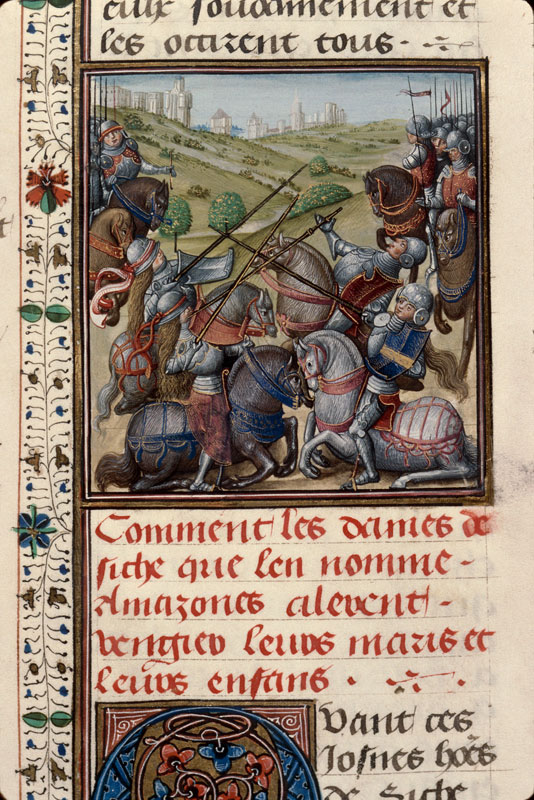 eulx soudainement et
les occirent tous.
Comment les dames de
siche que len nomme
Amazones alerent
vengier leurs maris et
leurs enfans.
Quant ces
Josnes hões
de siche